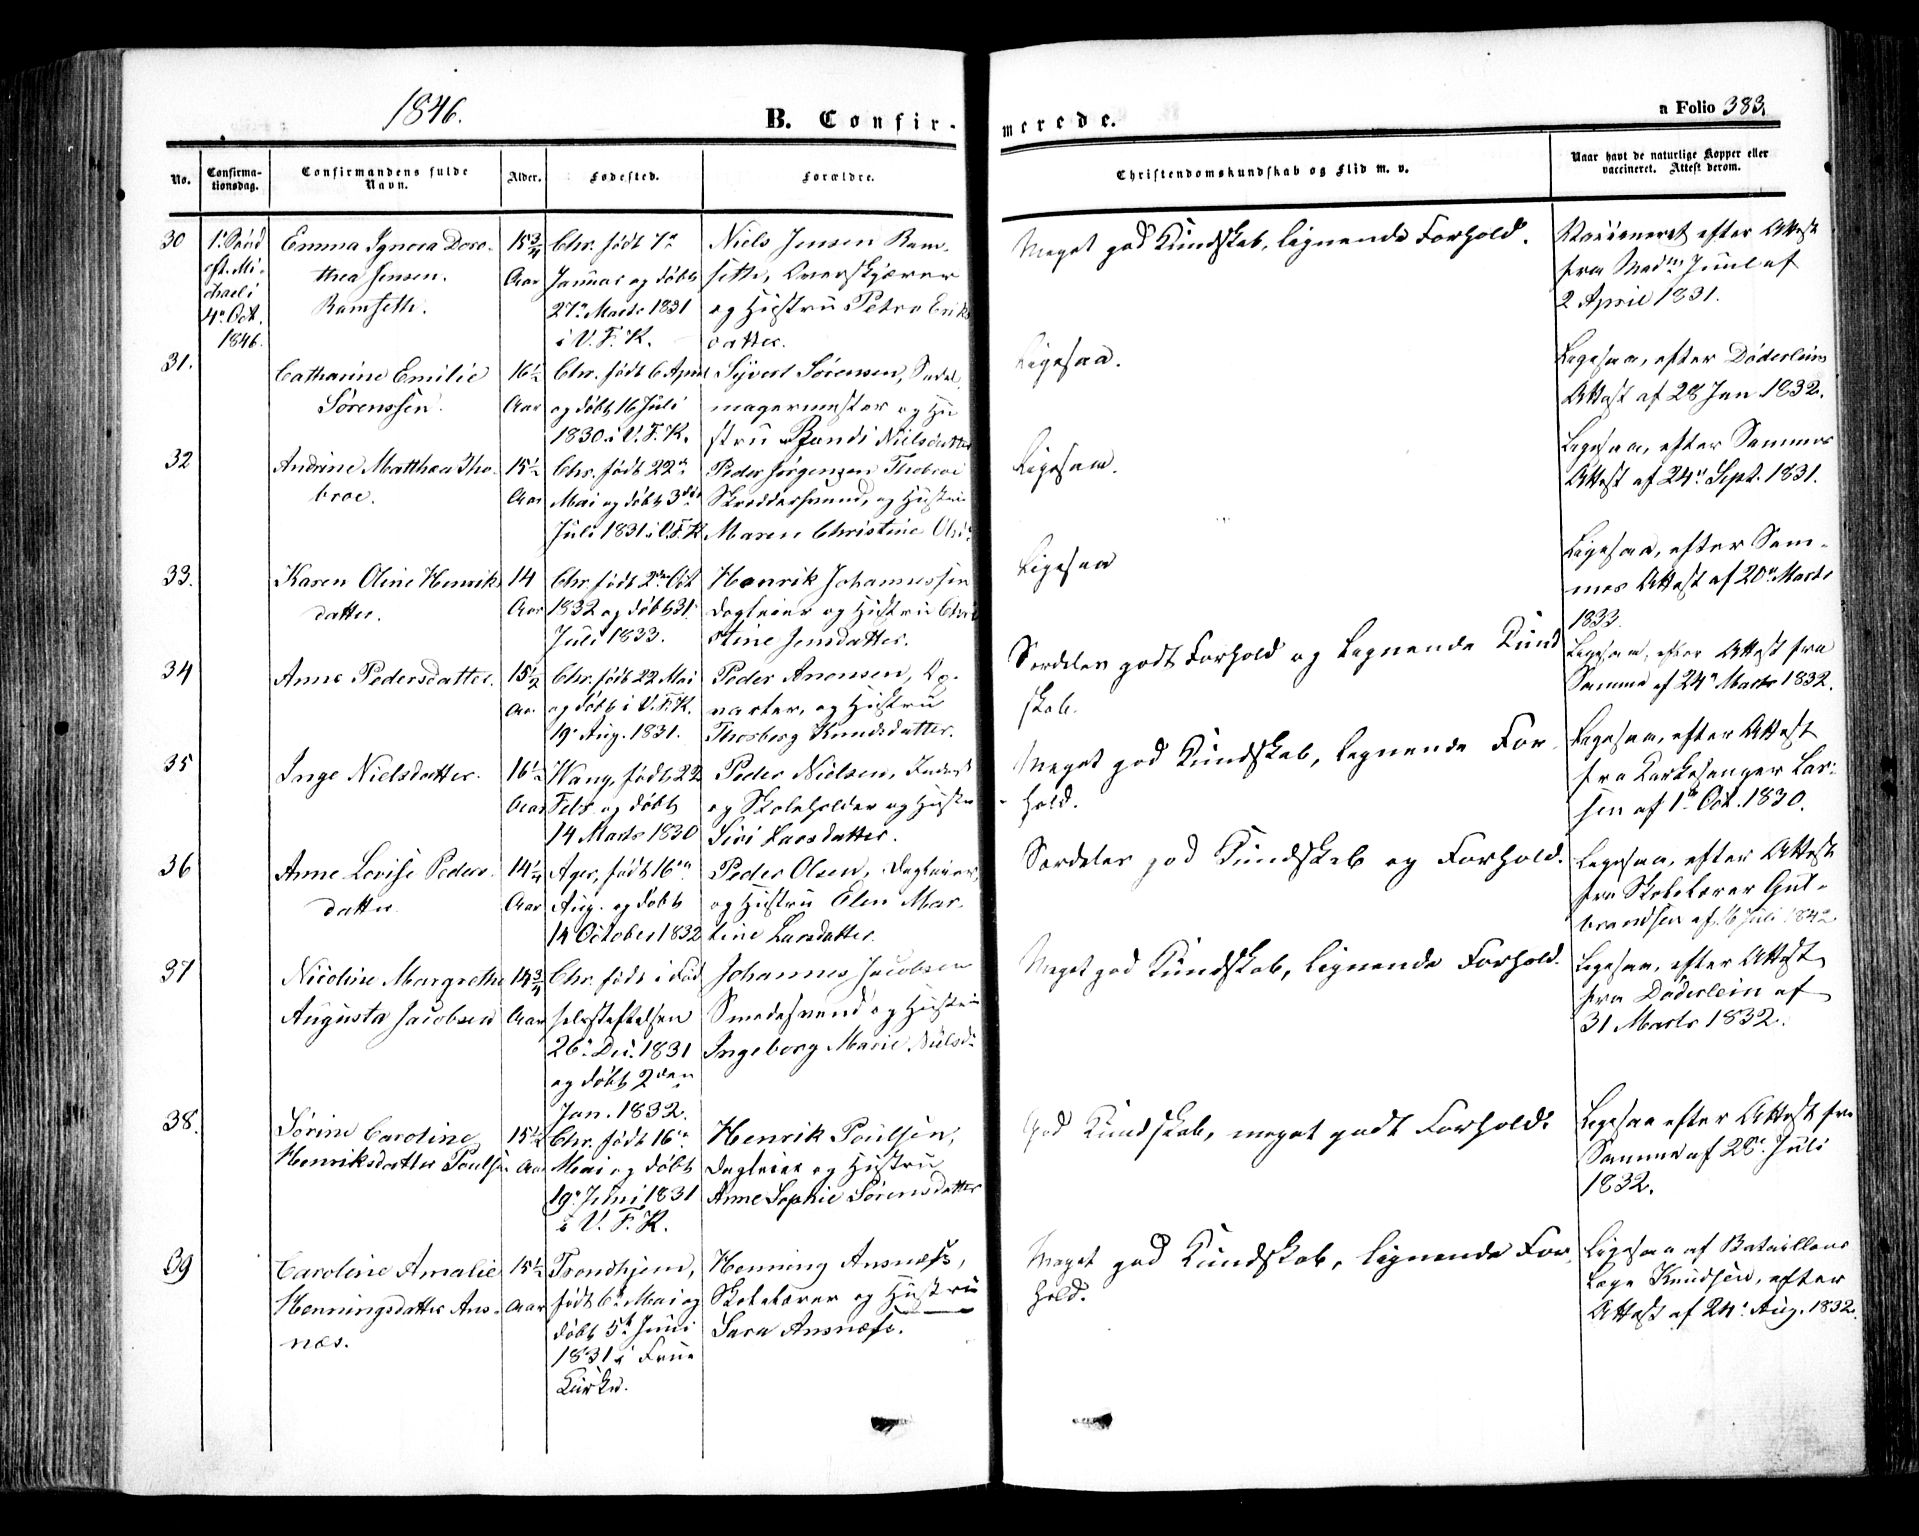 1846.
B. Confir-
merede.
a Folio 383.
No.
Confirma-
tionsdag.
Confirmandens fulde
Navn.
Alder.
Fødested.
Forældre.
Christendomskundskab og Flid m. v.
Naar havt de naturlige Kopper eller
vaccineret. Attest derom.
30
1ste Sønd
eft. Mi-
chaeli
4de Oct.
1846.
Emma Doro-
thea Jensen
Ramseth.
15 3/4
Aar
Chr. født 7de
Januar og døbt
27de Marts 1831
i V. F. K.
Niels Jensen Ram-
seth,
og Hustru Petra Eriks
datter.
Meget god Kundskab, lignende Forhold.
Vaccineret efter Attest
fra Juul af
2 April 1831.
31.
Catharine Emilie
Sørenssen.
16 1/2
Aar
Chr. født 6 April
og døbt 16 Juli
1830 i V. F. K.
Syvert Sørensen, Sadel
magermester og Hu
stru Nielsdatter
Ligesaa.
Ligesaa, efter Døderleins
Attest af 28 Jan 1832.
32
Andrine Matthea Tho-
broe.
15 1/2
Aar
Chr. født 22de
Mai og døbt 3die
Juli 1831 i V. F. K
Peder Jørgensen Thobroe
Skreddersvend, og Hustru
Maren Christine
Ligesaa.
Ligesaa, efter Sammes
Attest af 24de Sept. 1831.
33.
Karen Oline Henriks
datter.
14
Aar
Chr. født 2den Oct
1832 og døbt 31
Juli 1833.
Henrik Johannessen
Dagleier og Hustru Chri
stine Jensdatter.
Ligesaa
Ligesaa, efter Sam-
mes Attest af 20de Marts
1833.
34
Anne Pedersdatter.
15 1/2
Aar
Chr. født 22 Mai
og døbt i V. F. K.
19. Aug. 1831.
Peder Anensen, Op-
varter, og Hustru
Thorborg Knudsdatter.
Særdeles godt Forhold og lignende Kund
skab.
Ligesaa, efter Attest fra
Samme af 24de Marts 1832.
35
Inge Nielsdatter.
16 1/2
Aar
Wang, født 22
Feb. og døbt
14 Marts 1830
Peder Nielsen,
og Skoleholder og Hustru
Siri Larsdatter.
Meget god Kundskab, lignende For-
hold.
Ligesaa, efter Attest
fra Kirkesanger Lar-
sen af 1ste Oct. 1830.
36
Anne Lovise Peders-
datter
14 1/4
Aar
Ager, født 16de
Aug. og døbt
14 October 1832
Peder Olsen, Dagleier,
og Hustru Elen Mar-
tine Larsdatter.
Særdeles god Kundskab og Forhold.
Ligesaa, efter Attest
fra Skolelærer Gul-
brandsen af 16 Juli 1842
37
Nicoline Margrethe
Augusta Jacobsen
14 3/4
Aar
Chr. født i Fød
selsstiftelsen
26de Dec. 1831
og døbt 2den
Jan. 1832.
Johannes Jacobsen
Smedesvend og Hustru
Ingeborg Marie Nielsd.
Meget god Kundskab, lignende Forhold.
Ligesaa, efter Attest
fra Døderlein af
31 Marts 1832.
38.
Sørine Caroline
Henriksdatter Poulsen
15 1/2
Aar
Chr. født 16de
Mai og døbt
19de Juni 1831
i V. F. K.
Henrik Poulsen,
Dagleier og Hustru
Anne Sophie Sørensdatter
God Kundskab, meget godt Forhold.
Ligesaa efter Attest fra
Samme af 28de Juli
1832.
39
Caroline Amalie
Henningsdatter Ans-
næs.
15 1/2
Aar
Trondhjem,
født 6te Mai og
døbt 5te Juni
1831 i Frue
Kirke.
Henning Ansnæss,
Skolelærer og Hustru
Sara Ansnæss.
Meget god Kundskab, lignende For-
hold.
Ligesaa af Bataillons
Læge Knudsen, efter
Attest af 24de Aug. 1832.